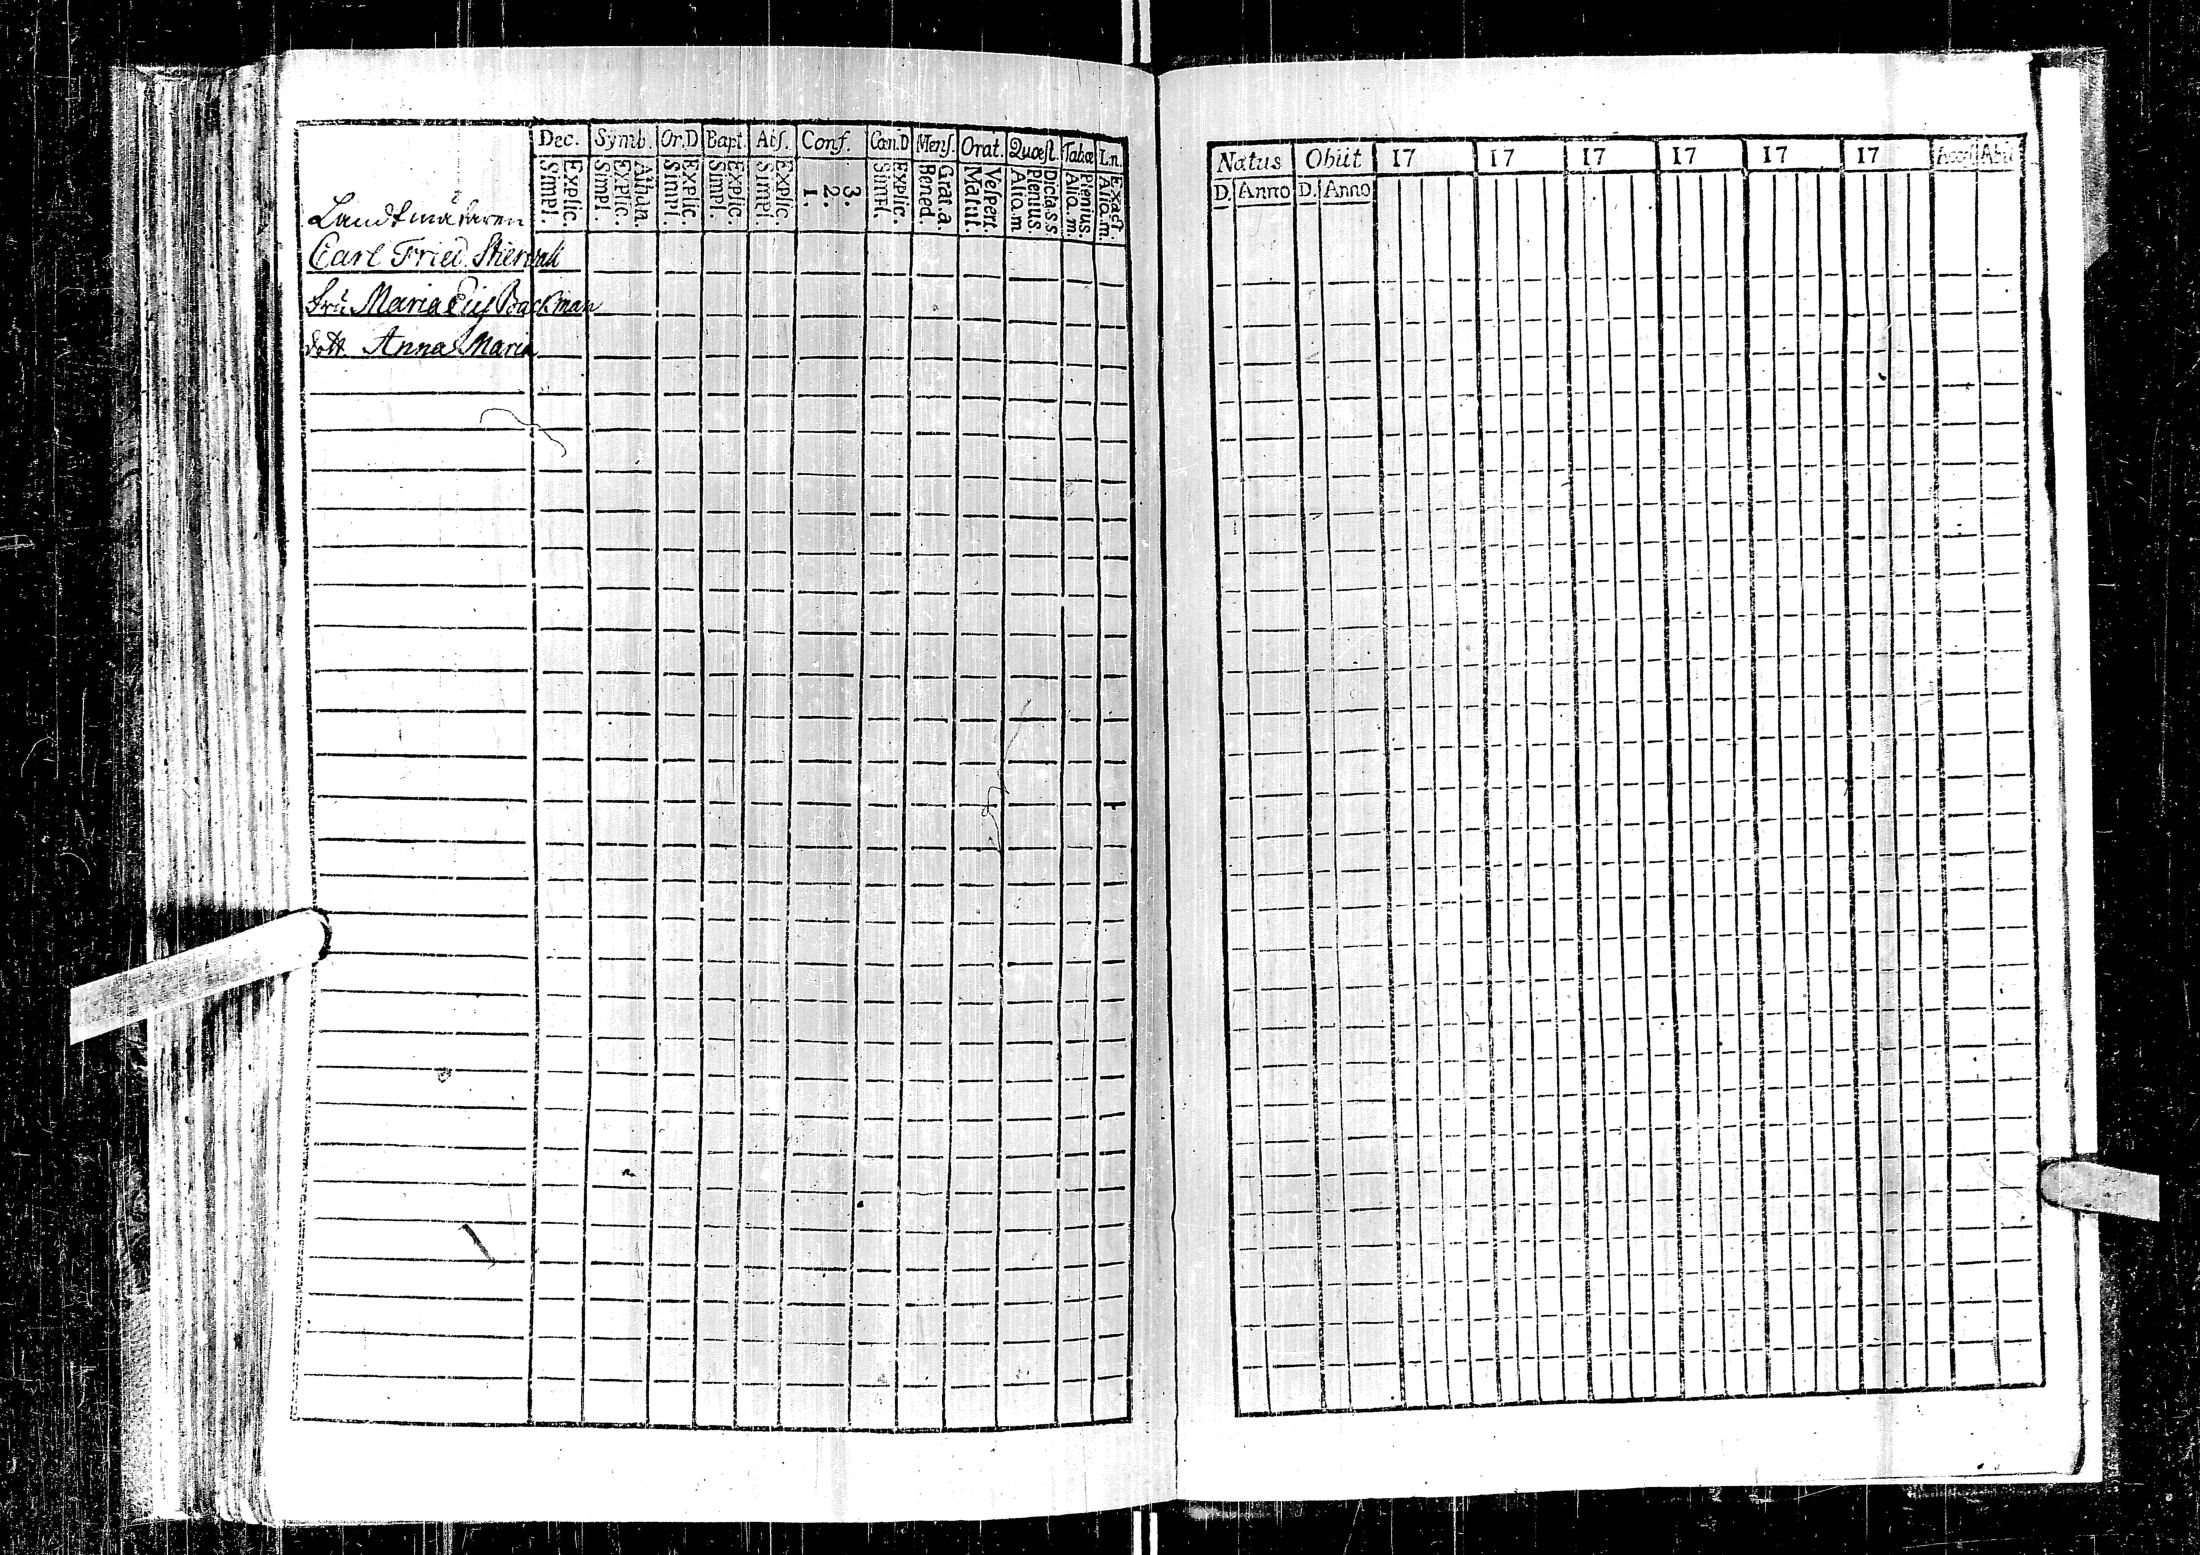 Dec. Symb. Or.D Bapt. Abs. Conf. Cœn.D Mens. Orat. Quæst. Tabæ Ln.
Simpl. Explic.
Simpl. Explic. Athan.
Simpl. Explic.
Simpl. Explic.
Simpl. Explic.
1. 2. 3.
Simpl. Explic.
Bened. Grat.a.
Matut. Vespert.
Aliq.m Plenius Dicta.s.s
Aliq.m. Plenius.
Aliq.m. Exact.
Landtmätaren
Carl Fried.
fru Maria Backman
dott Anna Maria
Natus Obiit 17 17 17 17 17 17 Acces Abit
D. Anno D. Anno